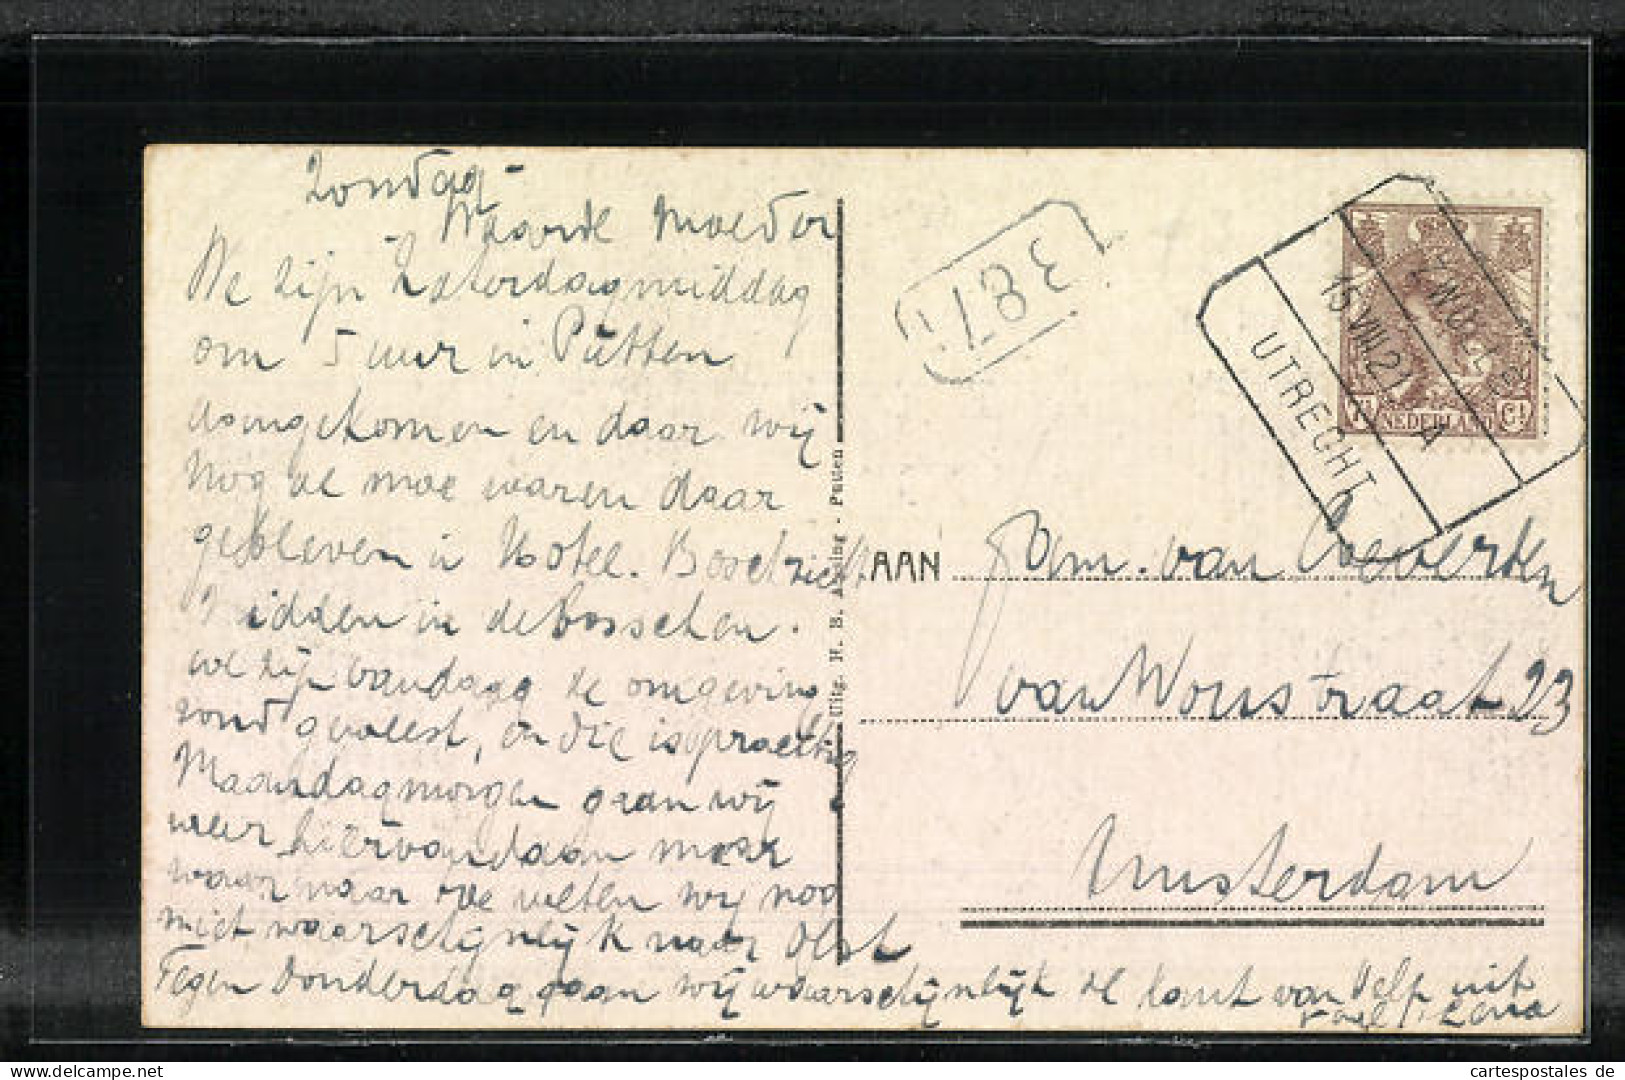 Zondag -
Waarde Moeder
We zijn Zaterdagmiddag
om 5 uur in Putten
aangekomen en daar wij
nog al moe waren daar
gebleven in Hotel. Boschzicht
Midden in de bosschen.
we zijn vandaag de omgeving
rond geweest, en die is prachtig
Maandagmorgen gaan wij
weer hiervandaan maar
waar naar toe weten wij nog
niet waarschijnlijk naar Olst
Tegen Donderdag gaan wij waarschijnlijk de kant van Delf uit
Lena
Uitg. H. B. - Putten
387
ZWOLLE
15 VII 21 A
UTRECHT
7½ NEDERLAND Ct
AAN Fam. van Coeverden
van Woustraat 23
Amsterdam
cartespostales de